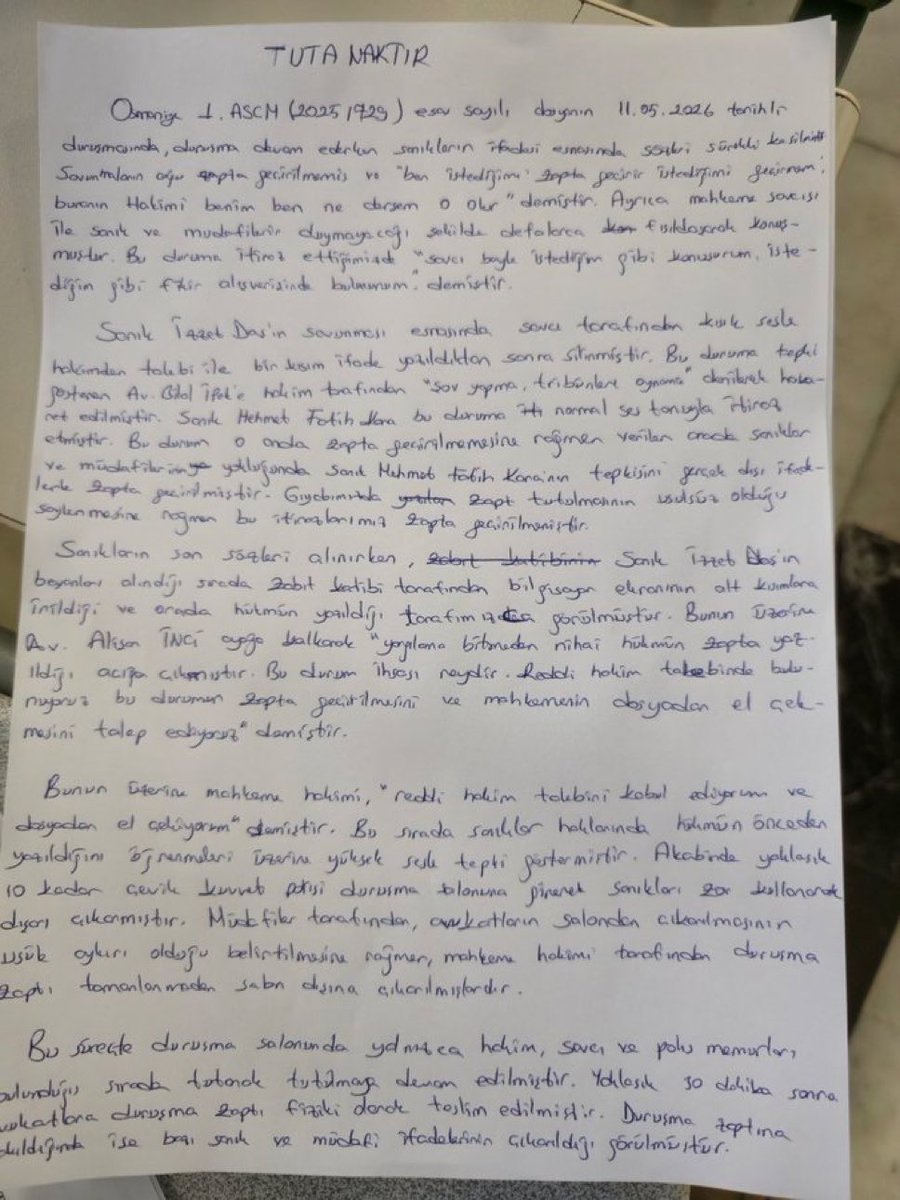 TUTANAKTIR
Osmaniye 1. ASCM (2025/729) esas sayılı dosyanın 11.05.2026 tarihli
duruşmasında, duruşma devam ederken sanıkların ifadesi esnasında sözleri sürekli kesilmiş
Savunmaların çoğu zapta geçirilmemiş ve "ben istediğimi zapta geçirir istediğimi geçirmem,
buranın Hakimi benim ben ne dersem o olur" demiştir. Ayrıca mahkeme savcısı
ile sanık ve müdafilerin duymayacağı şekilde defalarca fısıldaşarak konuş-
muştur. Bu duruma itiraz ettiğimizde "savcı boyle istediğim gibi konuşurum, iste-
diğim gibi fikir alışverişinde bulunurum." demiştir.
Sanık İzzet Daş'ın savunması esnasında savcı tarafından kısık sesle
hakimden talebi ile bir kısım ifade yazıldıktan sonra silinmiştir. Bu duruma tepki
gösteren Av. Bilal İpek'e hakim tarafından "şov yapma, tribünlere oynama" denilerek haka-
ret edilmiştir. Sanık Mehmet Fatih Kara bu duruma normal ses tonuyla itiraz
etmiştir. Bu durum o anda zapta geçirilmemesine rağmen verilen arada sanıklar
ve müdafilerin yokluğunda sanık Mehmet Fatih Kara'nın tepkisini gerçek dışı ifade-
lerle zapta geçirilmiştir. Gıyabımızda zapt tutulmasının usulsüz olduğu
söylenmesine rağmen bu itirazlarımız zapta geçirilmemiştir.
Sanıkların son sözleri alınırken, zabıt katibinin Sanık İzzet Daş'ın
beyanları alındığı sırada zabıt katibi tarafından bilgisayar ekranının alt kısımlara
inildiği ve orada hükmün yazıldığı tarafımızca görülmüştür. Bunun üzerine
Av. Alişan İNCİ ayağa kalkarak "yargılama bitmeden nihai hükmün zapta yaz-
ıldığı açığa çıkmıştır. Bu durum ihsası reydir. Reddi hakim talebinde bulu-
nuyoruz bu durumun zapta geçirilmesini ve mahkemenin dosyadan el çek-
mesini talep ediyoruz" demiştir.
Bunun üzerine mahkeme hakimi, "reddi hakim talebini kabul ediyorum ve
dosyadan el çekiyorum" demiştir. Bu sırada sanıklar haklarında hükmün önceden
yazıldığını öğrenmeleri üzerine yüksek sesle tepki göstermiştir. Akabinde yaklaşık
10 kadar çevik kuvvet polisi duruşma salonuna girerek sanıkları zor kullanarak
dışarı çıkarmıştır. Müdafiler tarafından, avukatların salondan çıkarılmasının
usule aykırı olduğu belirtilmesine rağmen, mahkeme hakimi tarafından duruşma
zaptı tamamlanmadan salon dışına çıkarılmışlardır.
Bu süreçte duruşma salonunda yalnızca hakim, savcı ve polis memurları
bulunduğu sırada tutanak tutulmaya devam edilmiştir. Yaklaşık 30 dakika sonra
avukatlara duruşma zaptı fiziki olarak teslim edilmiştir. Duruşma zaptına
bakıldığında ise bazı sanık ve müdafi ifadelerinin çıkarıldığı görülmüştür.